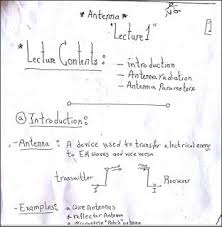 * Antenna *
"Lecture 1"
* Lecture Contents:
- introduction
- Antenna radiation
- Antenna Parameters
ⓐ Introduction:
- Antenna: A device used to transfer electrical energy
to EM waves and vice versa
Transmitter
Receiver
- Examples: * Wire Antennas
* reflector Antenna
* Microstrip "Patch"